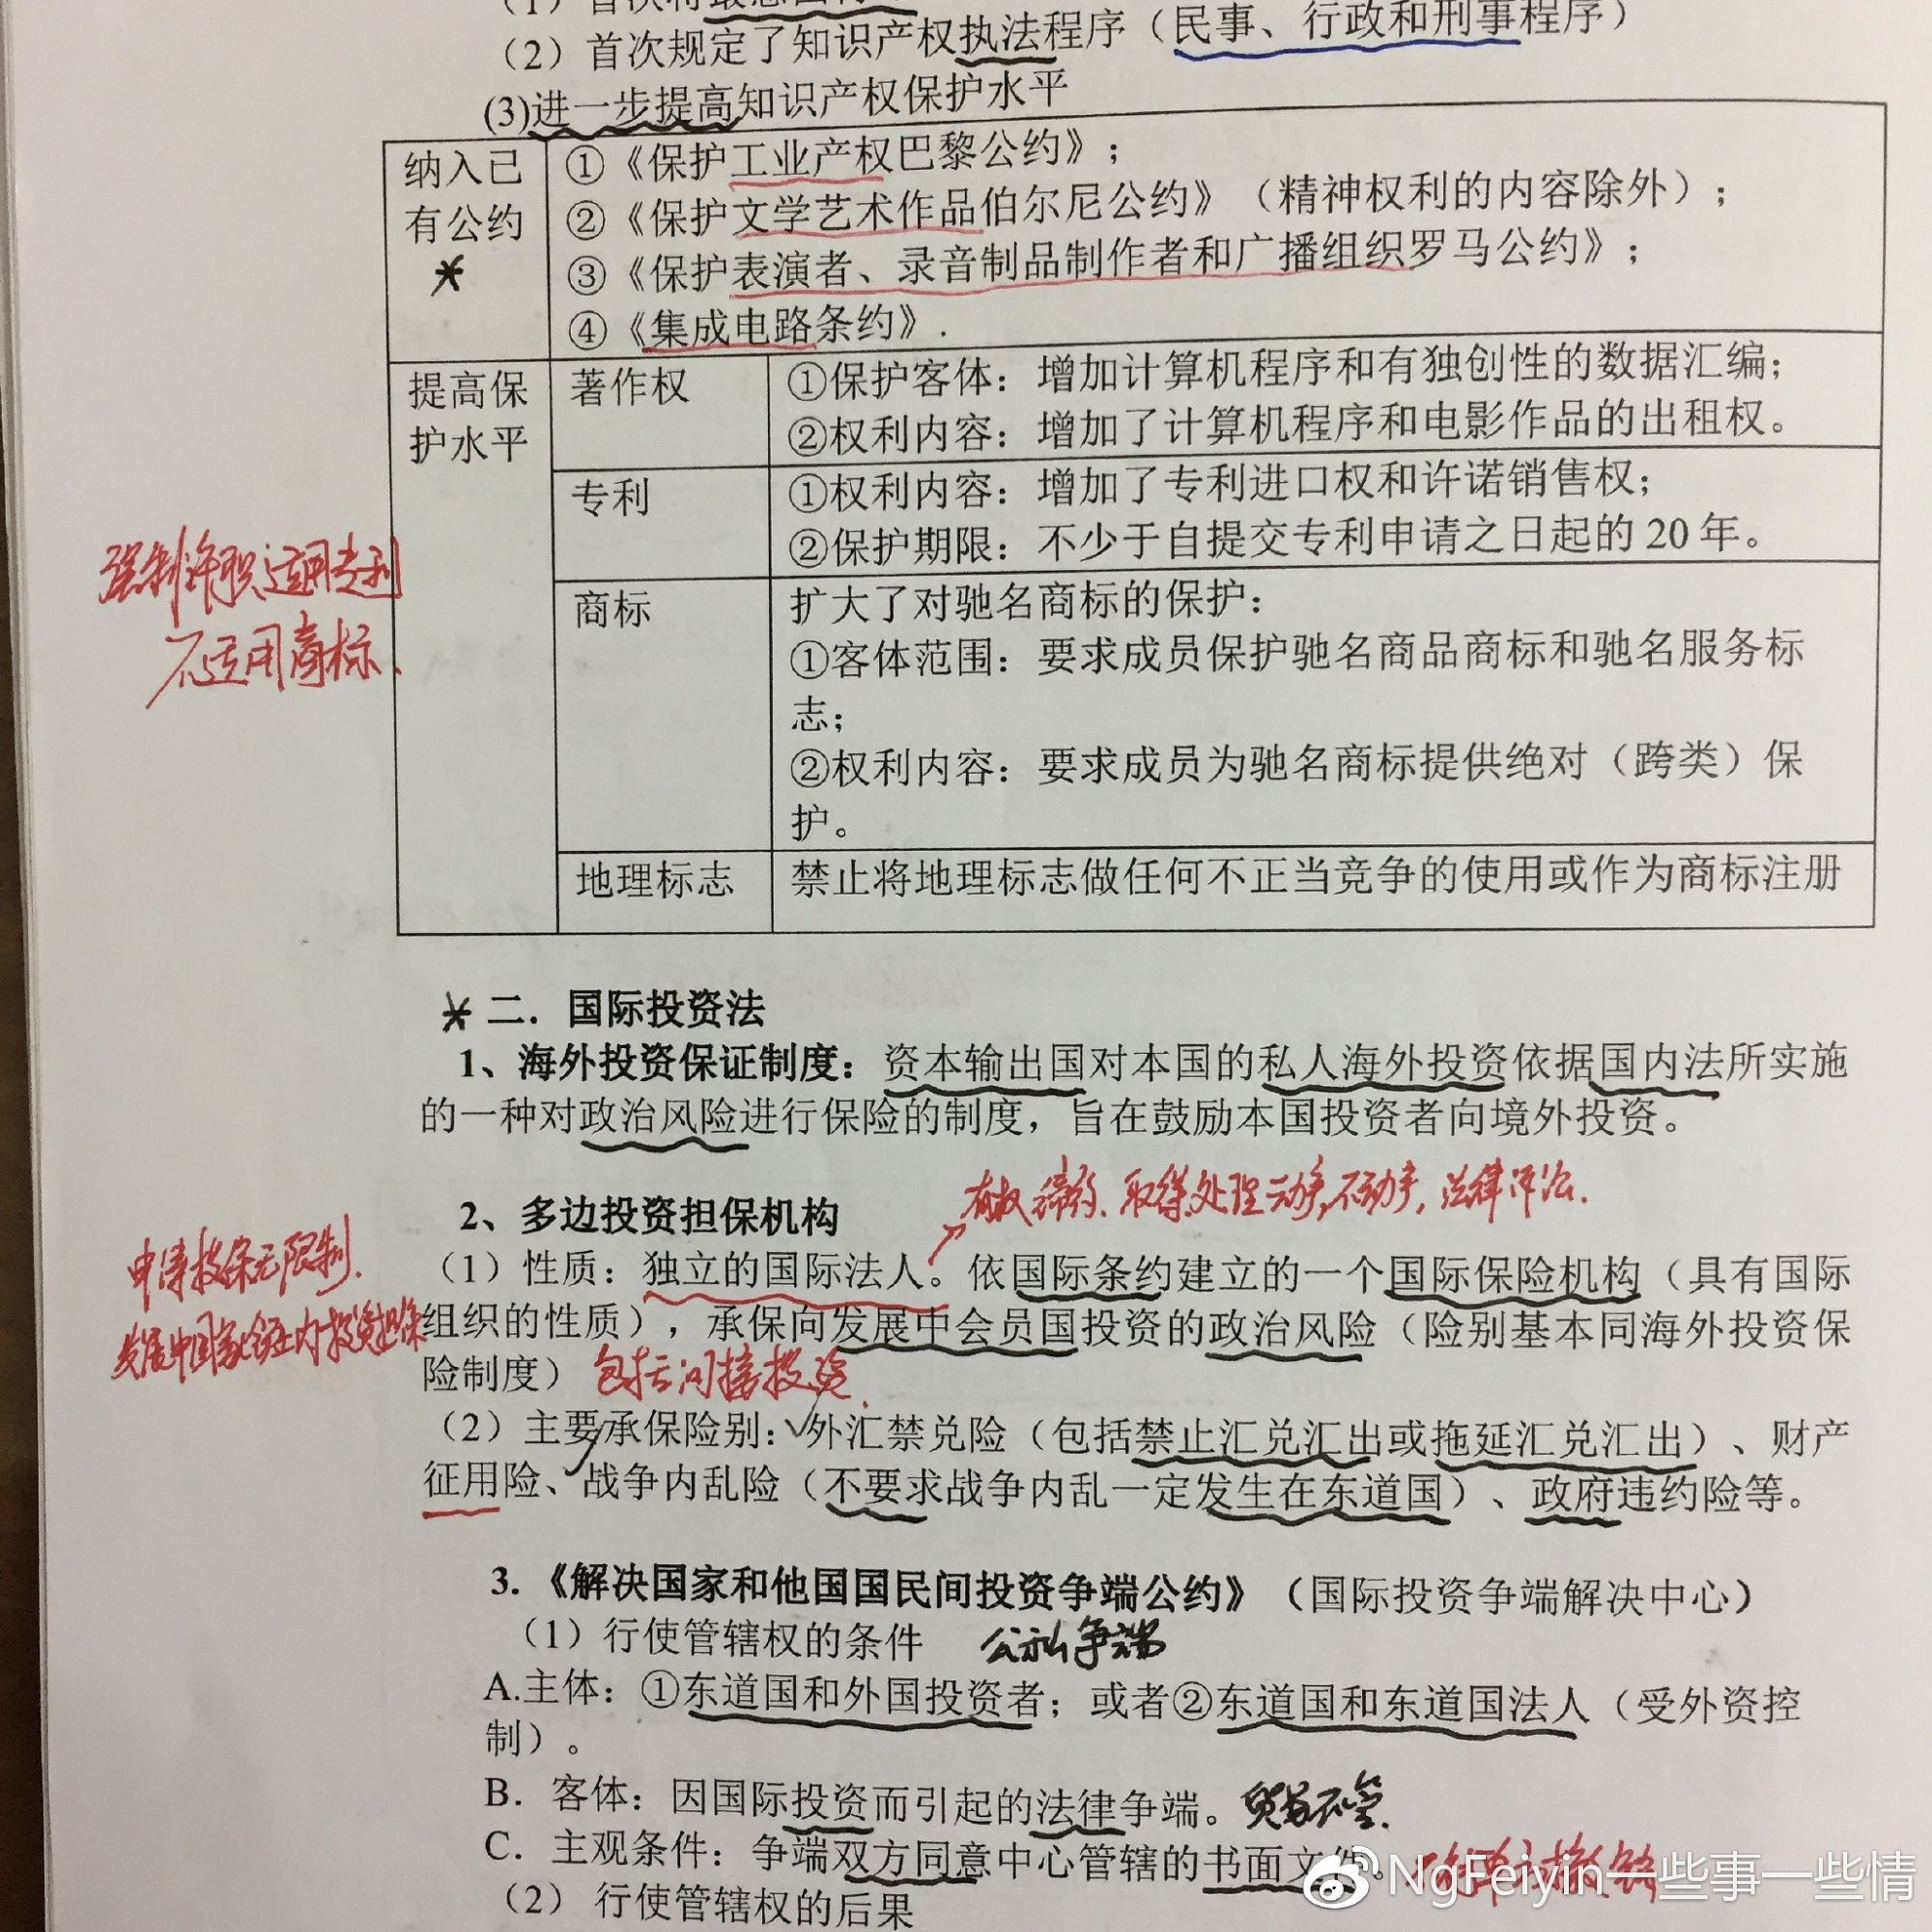 （1）首次将最惠国待
（2）首次规定了知识产权执法程序（民事、行政和刑事程序）
(3)进一步提高知识产权保护水平
纳入已
有公约
①《保护工业产权巴黎公约》；
②《保护文学艺术作品伯尔尼公约》（精神权利的内容除外）；
③《保护表演者、录音制品制作者和广播组织罗马公约》；
④《集成电路条约》.
提高保
护水平
著作权
①保护客体：增加计算机程序和有独创性的数据汇编；
②权利内容：增加了计算机程序和电影作品的出租权。
专利
①权利内容：增加了专利进口权和许诺销售权；
②保护期限：不少于自提交专利申请之日起的 20 年。
强制许可适用专利
不适用商标、
商标
扩大了对驰名商标的保护：
①客体范围：要求成员保护驰名商品商标和驰名服务标
志；
②权利内容：要求成员为驰名商标提供绝对（跨类）保
护。
地理标志
禁止将地理标志做任何不正当竞争的使用或作为商标注册
二．国际投资法
1、海外投资保证制度：资本输出国对本国的私人海外投资依据国内法所实施
的一种对政治风险进行保险的制度，旨在鼓励本国投资者向境外投资。
有权缔约、取得处理动产,不动产,法律诉讼.
2、多边投资担保机构
申请投保无限制.
（1）性质：独立的国际法人。依国际条约建立的一个国际保险机构（具有国际
发展中国家境内投资担保
组织的性质），承保向发展中会员国投资的政治风险（险别基本同海外投资保
险制度）包括间接投资.
（2）主要承保险别：外汇禁兑险（包括禁止汇兑汇出或拖延汇兑汇出）、财产
征用险、战争内乱险（不要求战争内乱一定发生在东道国）、政府违约险等。
3.《解决国家和他国国民间投资争端公约》（国际投资争端解决中心）
（1）行使管辖权的条件 公私争端
A.主体：①东道国和外国投资者；或者②东道国和东道国法人（受外资控
制）。
B．客体：因国际投资而引起的法律争端。贸易不管.
C．主观条件：争端双方同意中心管辖的书面文件。
NgFeiyin一些事一些情
（2）行使管辖权的后果